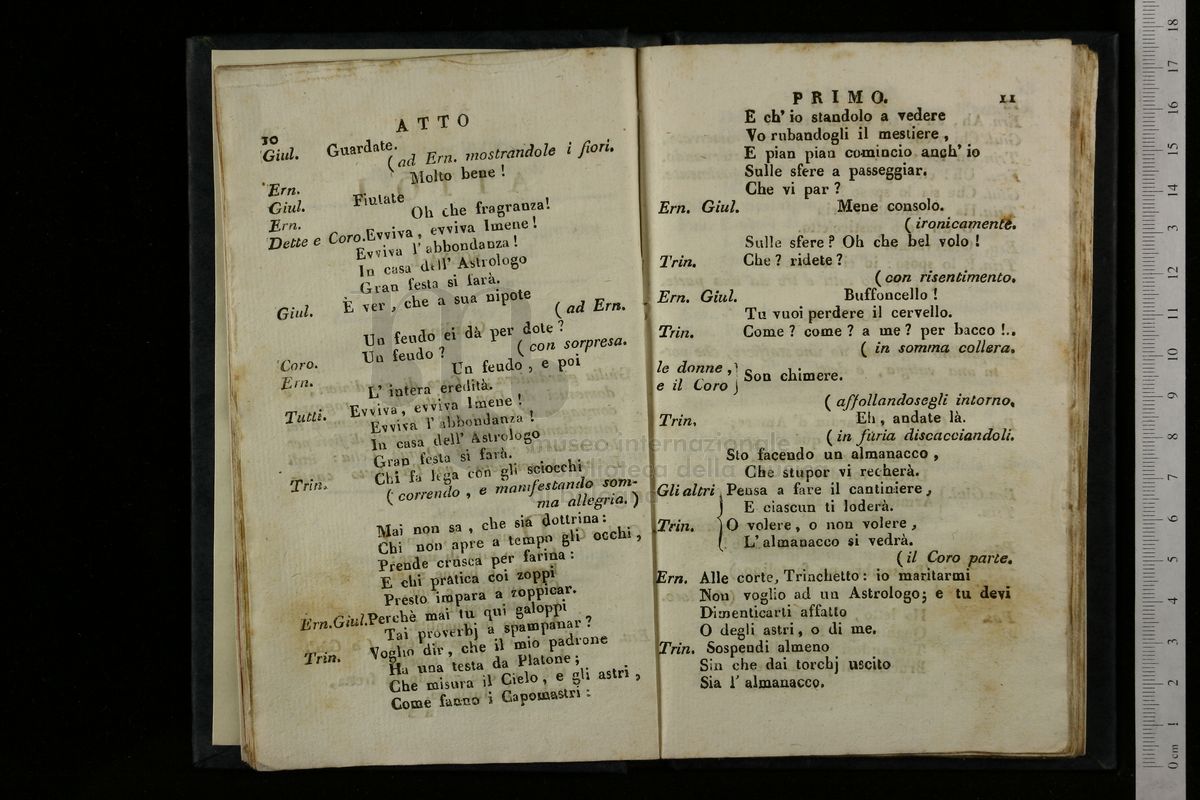 10
ATTO
Giul. Guardate.
( ad Ern. mostrandole i fiori.
Ern. Molto bene !
Giul. Fiutate
Ern. Oh che fragranza!
Dette e Coro.Evviva, evviva Imene !
Evviva l' abbondanza !
In casa dell' Astrologo
Gran festa si farà.
Giul. È ver, che a sua nipote
( ad Ern.
Un feudo ei dà per dote ?
Coro. Un feudo ? ( con sorpresa.
Ern. Un feudo, e poi
L' intera eredità.
Tutti. Evviva, evviva Imene !
Evviva l' abbondanza !
In casa dell' Astrologo
Gran festa si farà.
Trin. Chi fa lega con gli sciocchi
( correndo, e manifestando som-
ma allegria. )
Mai non sa, che sia dottrina:
Chi non apre a tempo gli occhi,
Prende crusca per farina:
E chi pratica coi zoppi
Presto impara a zoppicar.
Ern.Giul.Perchè mai tu qui galoppi
Tai proverbj a spampanar ?
Trin. Voglio dir, che il mio padrone
Ha una testa da Platone;
Che misura il Cielo, e gli astri,
Come fanno i Capomastri :
PRIMO. 11
E ch' io standolo a vedere
Vo rubandogli il mestiere,
E pian pian comincio anch' io
Sulle sfere a passeggiar.
Che vi par ?
Ern. Giul. Mene consolo.
( ironicamente.
Sulle sfere ? Oh che bel volo !
Trin. Che ? ridete ?
( con risentimento.
Ern. Giul. Buffoncello !
Tu vuoi perdere il cervello.
Trin. Come ? come ? a me ? per bacco !..
( in somma collera.
le donne,
e il Coro } Son chimere.
( affollandosegli intorno.
Trin. Eh, andate là.
( in furia discacciandoli.
Sto facendo un almanacco,
Che stupor vi recherà.
Gli altri Pensa a fare il cantiniere,
E ciascun ti loderà.
Trin. O volere, o non volere,
L' almanacco si vedrà.
( il Coro parte.
Ern. Alle corte, Trinchetto : io maritarmi
Non voglio ad un Astrologo; e tu devi
Dimenticarti affatto
O degli astri, o di me.
Trin. Sospendi almeno
Sin che dai torchj uscito
Sia l' almanacco.
museo internazionale
biblioteca della
0 cm 1 2 3 4 5 6 7 8 9 10 11 12 13 14 15 16 17 18